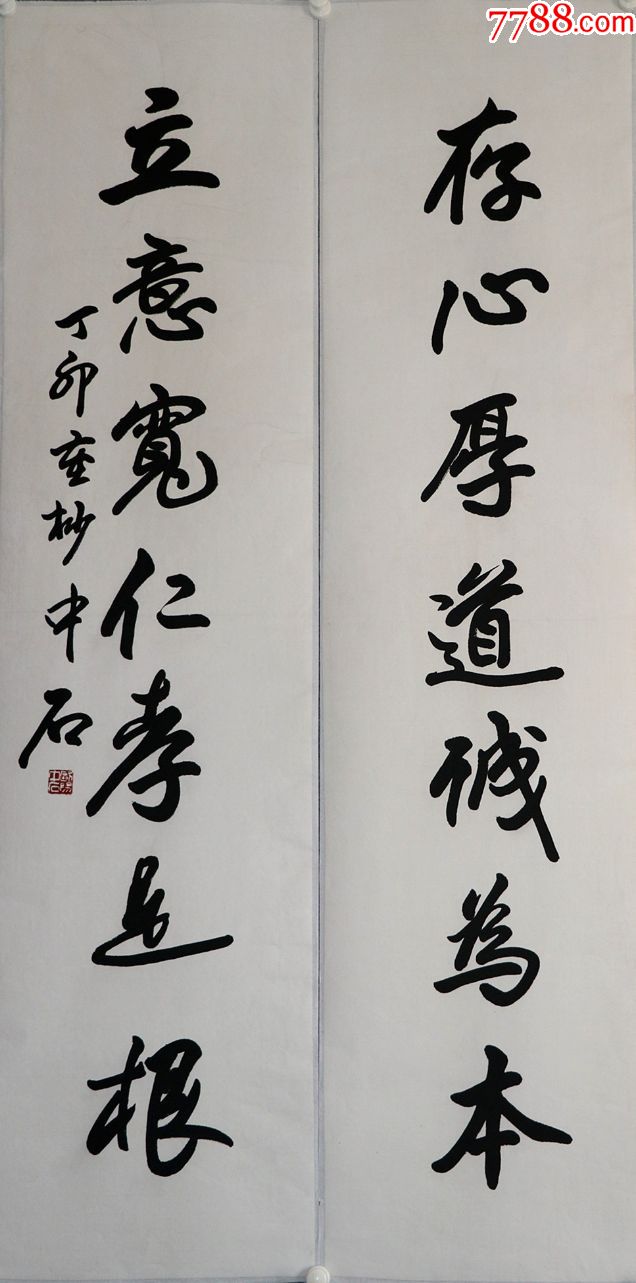 7788.com
存心厚道诚為本
立意寬仁孝是根
丁卯歲杪中石